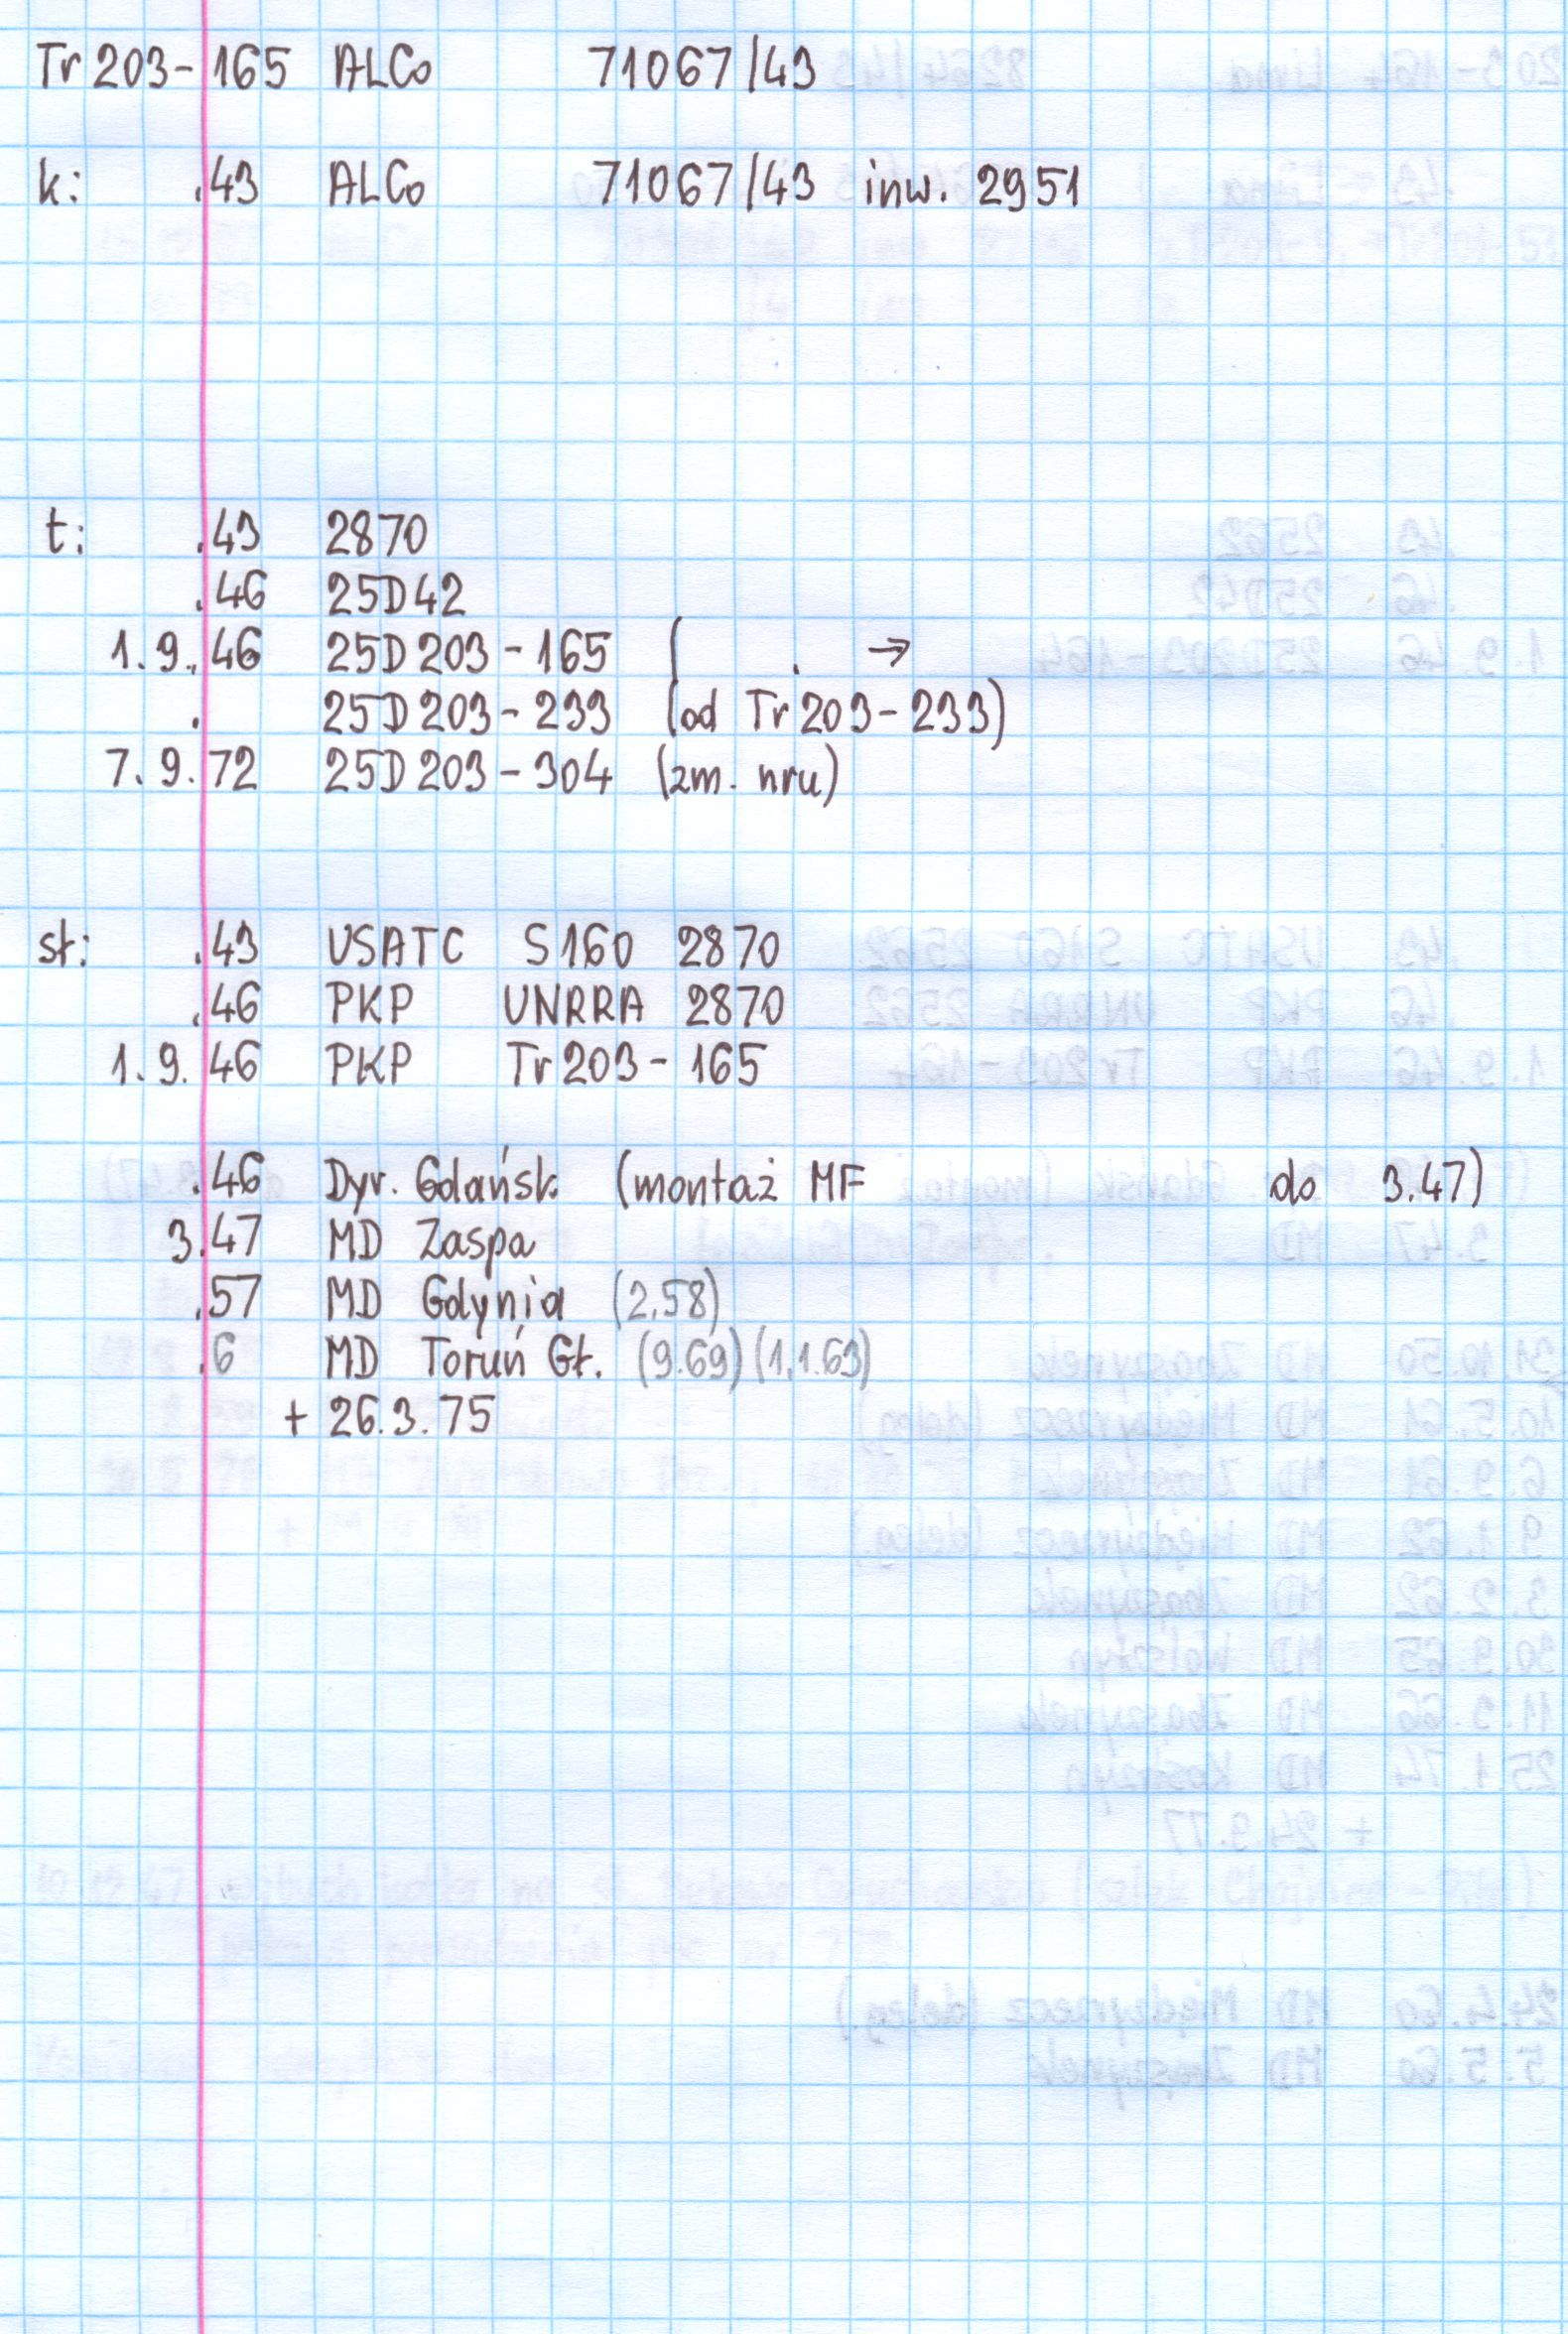 Tr 203-165 ALCo 71067/43
k: .43 ALCo 71067/43 inw. 2951
t: .43 2870
.46 25D42
1.9.46 25D203-165 ( . →
. 25D203-233 (od Tr203-233)
7.9.72 25D203-304 (zm. nru)
st: .43 USATC S160 2870
.46 PKP UNRRA 2870
1.9.46 PKP Tr203-165
.46 Dyr. Gdańsk (montaż MF do 3.47)
3.47 MD Zaspa
.57 MD Gdynia (2.58)
.6 MD Toruń Gł. (9.69) (1.1.63)
+ 26.3.75